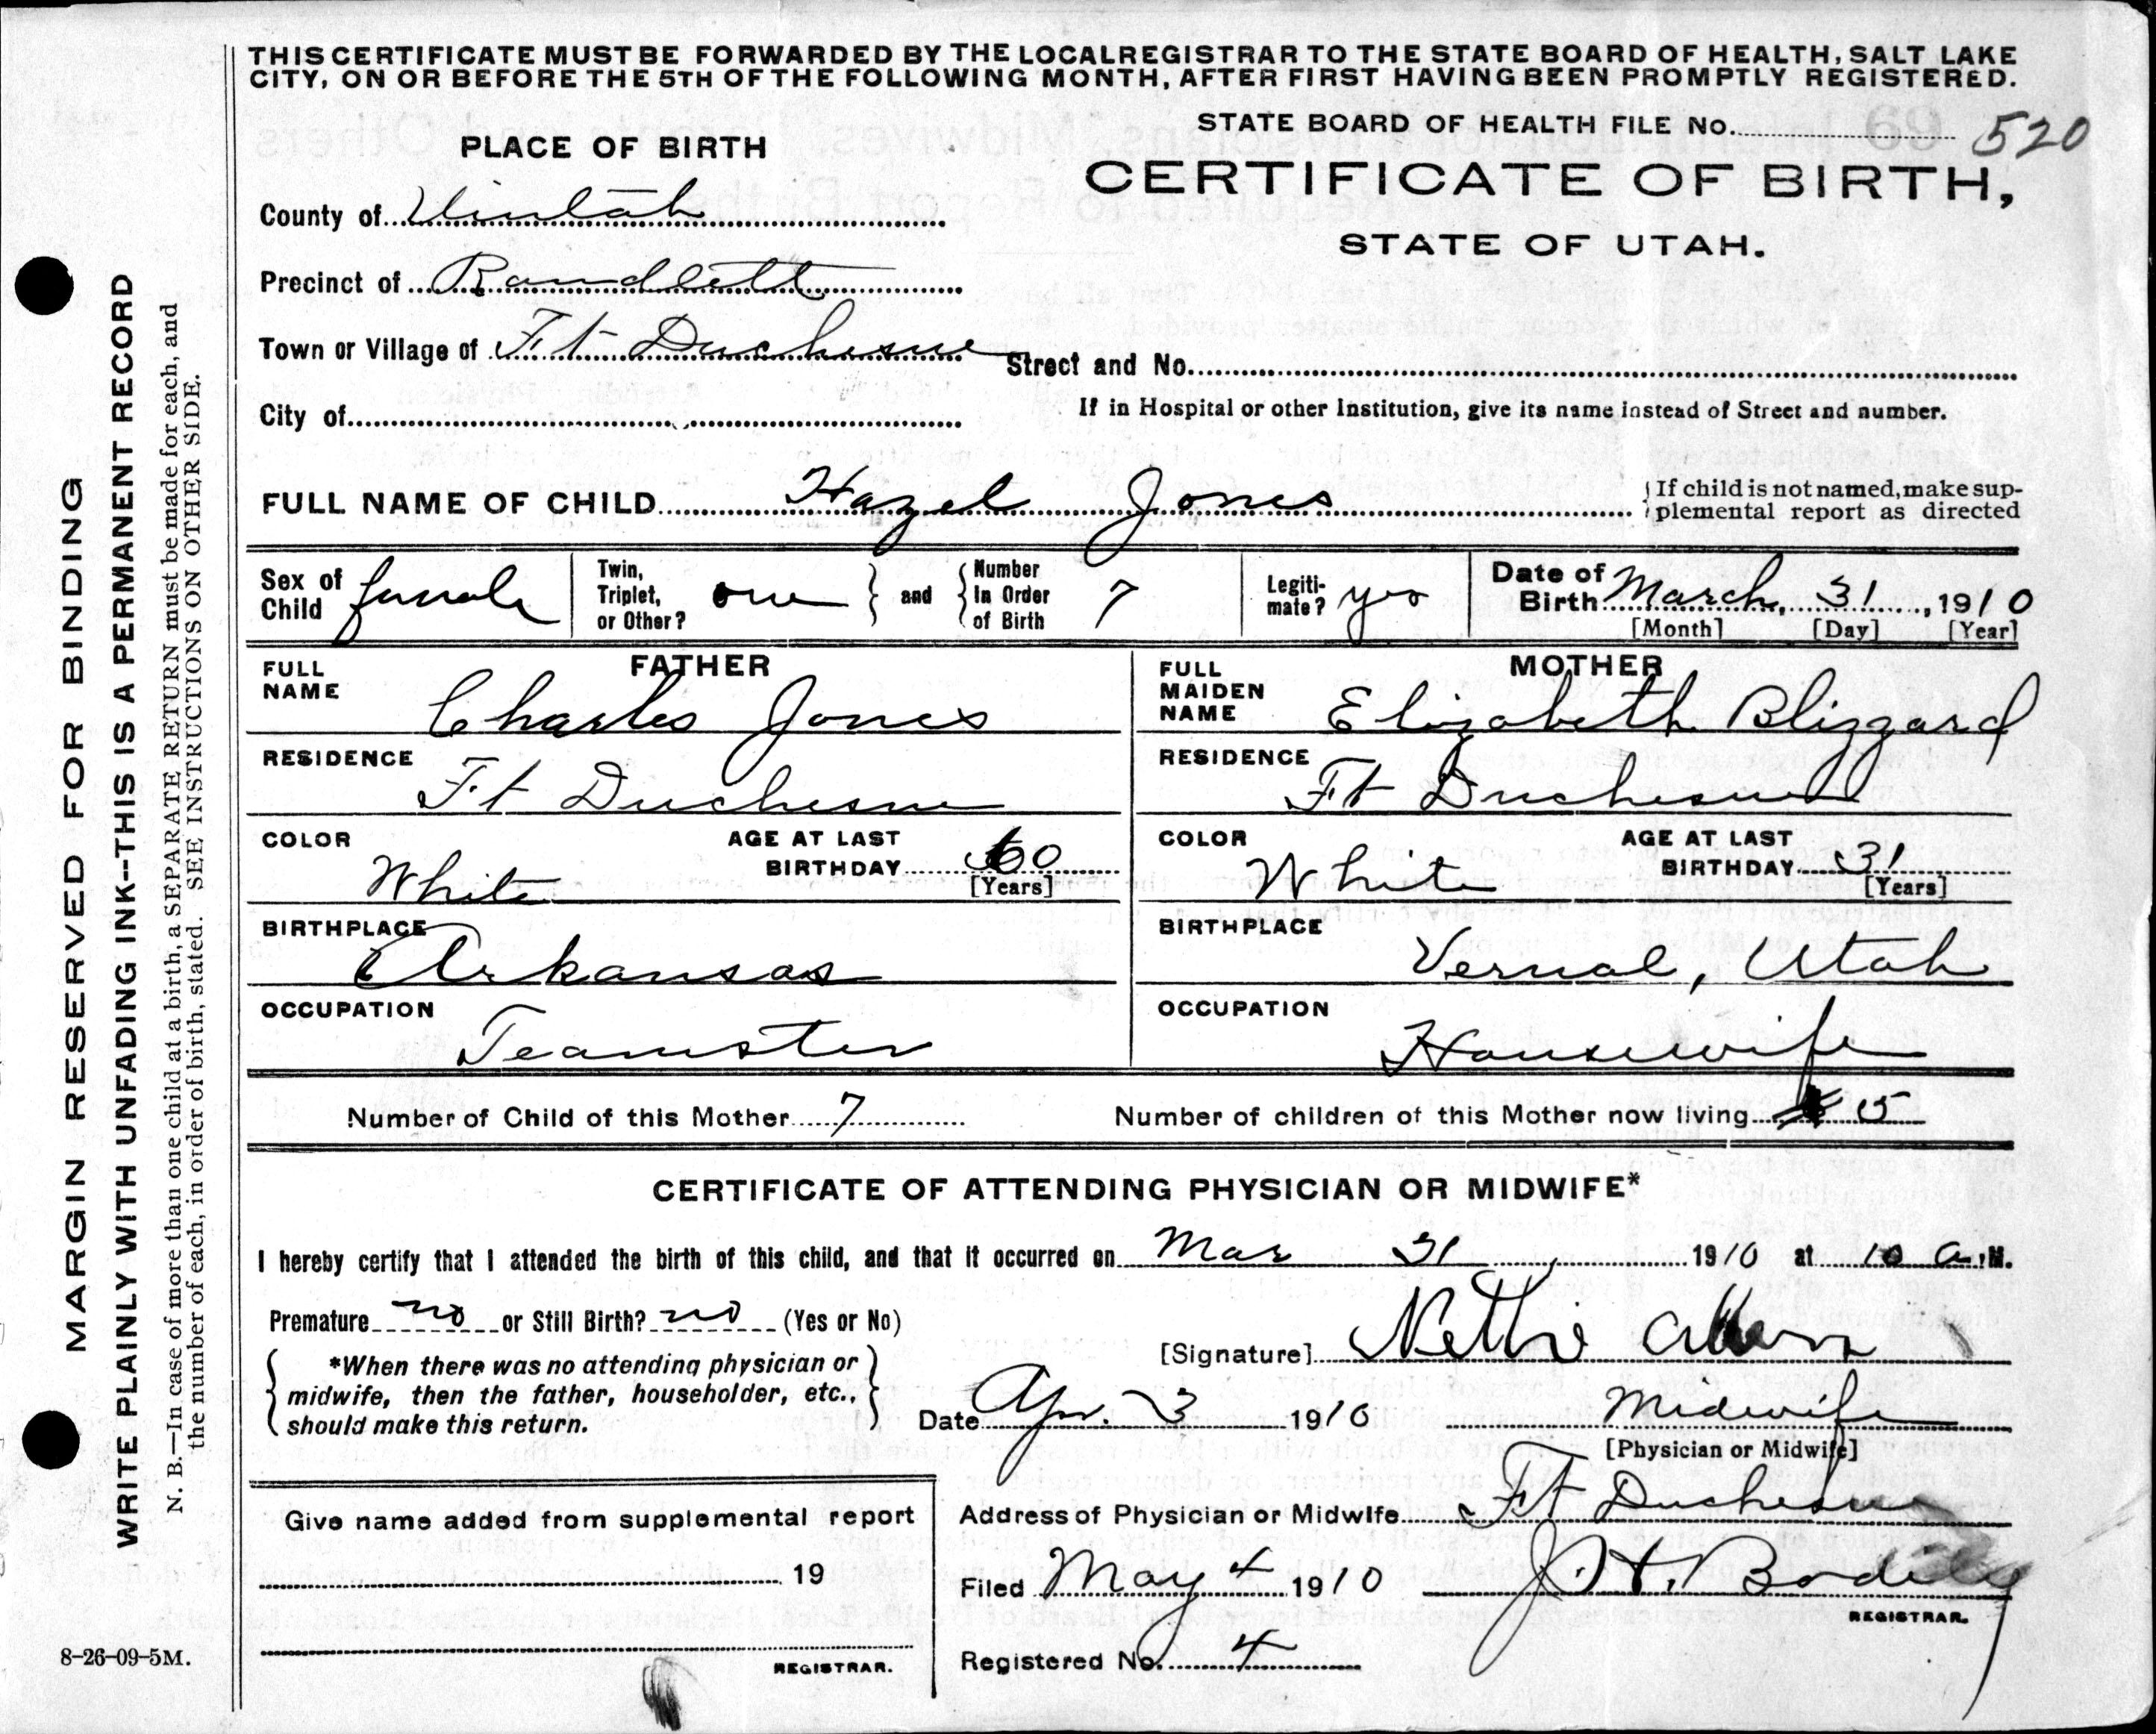 THIS CERTIFICATE MUST BE FORWARDED BY THE LOCAL REGISTRAR TO THE STATE BOARD OF HEALTH, SALT LAKE
CITY, ON OR BEFORE THE 5TH OF THE FOLLOWING MONTH, AFTER FIRST HAVING BEEN PROMPTLY REGISTERED.
STATE BOARD OF HEALTH FILE No. 520
PLACE OF BIRTH
CERTIFICATE OF BIRTH,
STATE OF UTAH.
County of Uintah
Precinct of Randlett
Town or Village of Ft Duchesne
Street and No.
City of
If in Hospital or other Institution, give its name instead of Street and number.
FULL NAME OF CHILD Hazel Jones
{If child is not named, make sup-
plemental report as directed
Sex of Child female
Twin, Triplet, or Other? one } and { Number In Order of Birth 7
Legiti-mate? yes
Date of Birth March, 31, 1910
[Month] [Day] [Year]
FATHER
FULL NAME Charles Jones
RESIDENCE Ft Duchesne
COLOR White
AGE AT LAST BIRTHDAY 60
[Years]
BIRTHPLACE Arkansas
OCCUPATION Teamster
MOTHER
FULL MAIDEN NAME Elizabeth Blizzard
RESIDENCE Ft Duchesne
COLOR White
AGE AT LAST BIRTHDAY 31
[Years]
BIRTHPLACE Vernal, Utah
OCCUPATION Housewife
Number of Child of this Mother 7
Number of children of this Mother now living 5
CERTIFICATE OF ATTENDING PHYSICIAN OR MIDWIFE*
I hereby certify that I attended the birth of this child, and that it occurred on Mar 31, 1910 at 10 a.M.
Premature no or Still Birth? no (Yes or No)
[Signature] Nettie
{ *When there was no attending physician or
midwife, then the father, householder, etc.,
should make this return. }
Date Apr. 3 1910
Midwife
[Physician or Midwife]
Address of Physician or Midwife Ft Duchesne
Give name added from supplemental report
19
REGISTRAR.
Filed May 4 1910 J. H. Bodily
REGISTRAR.
Registered No. 4
8-26-09-5M.
MARGIN RESERVED FOR BINDING
WRITE PLAINLY WITH UNFADING INK--THIS IS A PERMANENT RECORD
N. B.—In case of more than one child at a birth, a SEPARATE RETURN must be made for each, and
the number of each, in order of birth, stated. SEE INSTRUCTIONS ON OTHER SIDE.